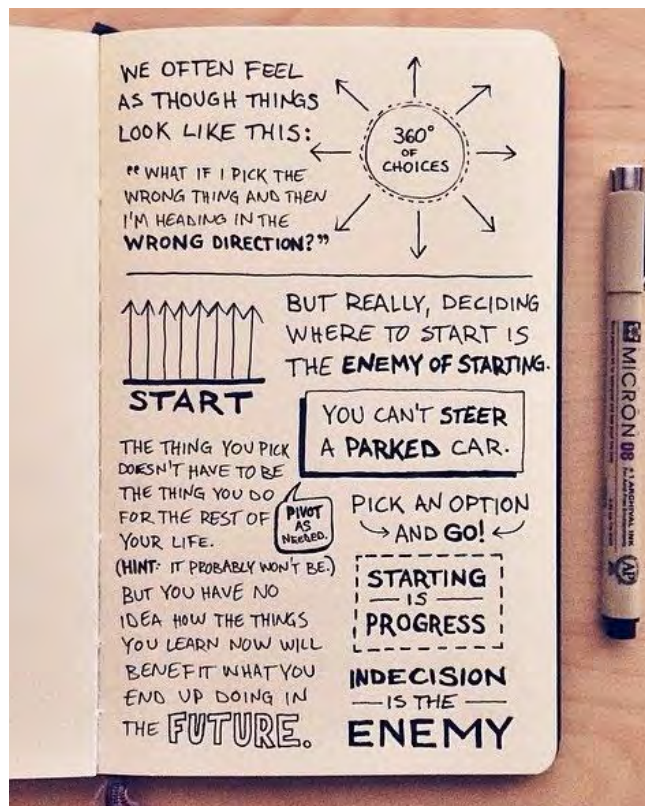 WE OFTEN FEEL
AS THOUGH THINGS
LOOK LIKE THIS:
"WHAT IF I PICK THE
WRONG THING AND THEN
I'M HEADING IN THE
WRONG DIRECTION?"
360°
OF
CHOICES
START
BUT REALLY, DECIDING
WHERE TO START IS
THE ENEMY OF STARTING.
YOU CAN'T STEER
A PARKED CAR.
THE THING YOU PICK
DOESN'T HAVE TO BE
THE THING YOU DO
FOR THE REST OF
YOUR LIFE.
PIVOT
AS
NEEDED.
(HINT: IT PROBABLY WON'T BE.)
BUT YOU HAVE NO
IDEA HOW THE THINGS
YOU LEARN NOW WILL
BENEFIT WHAT YOU
END UP DOING IN
THE FUTURE.
PICK AN OPTION
AND GO!
STARTING
IS
PROGRESS
INDECISION
IS THE
ENEMY
MICRON 08
#1 ARCHIVAL INK
AP